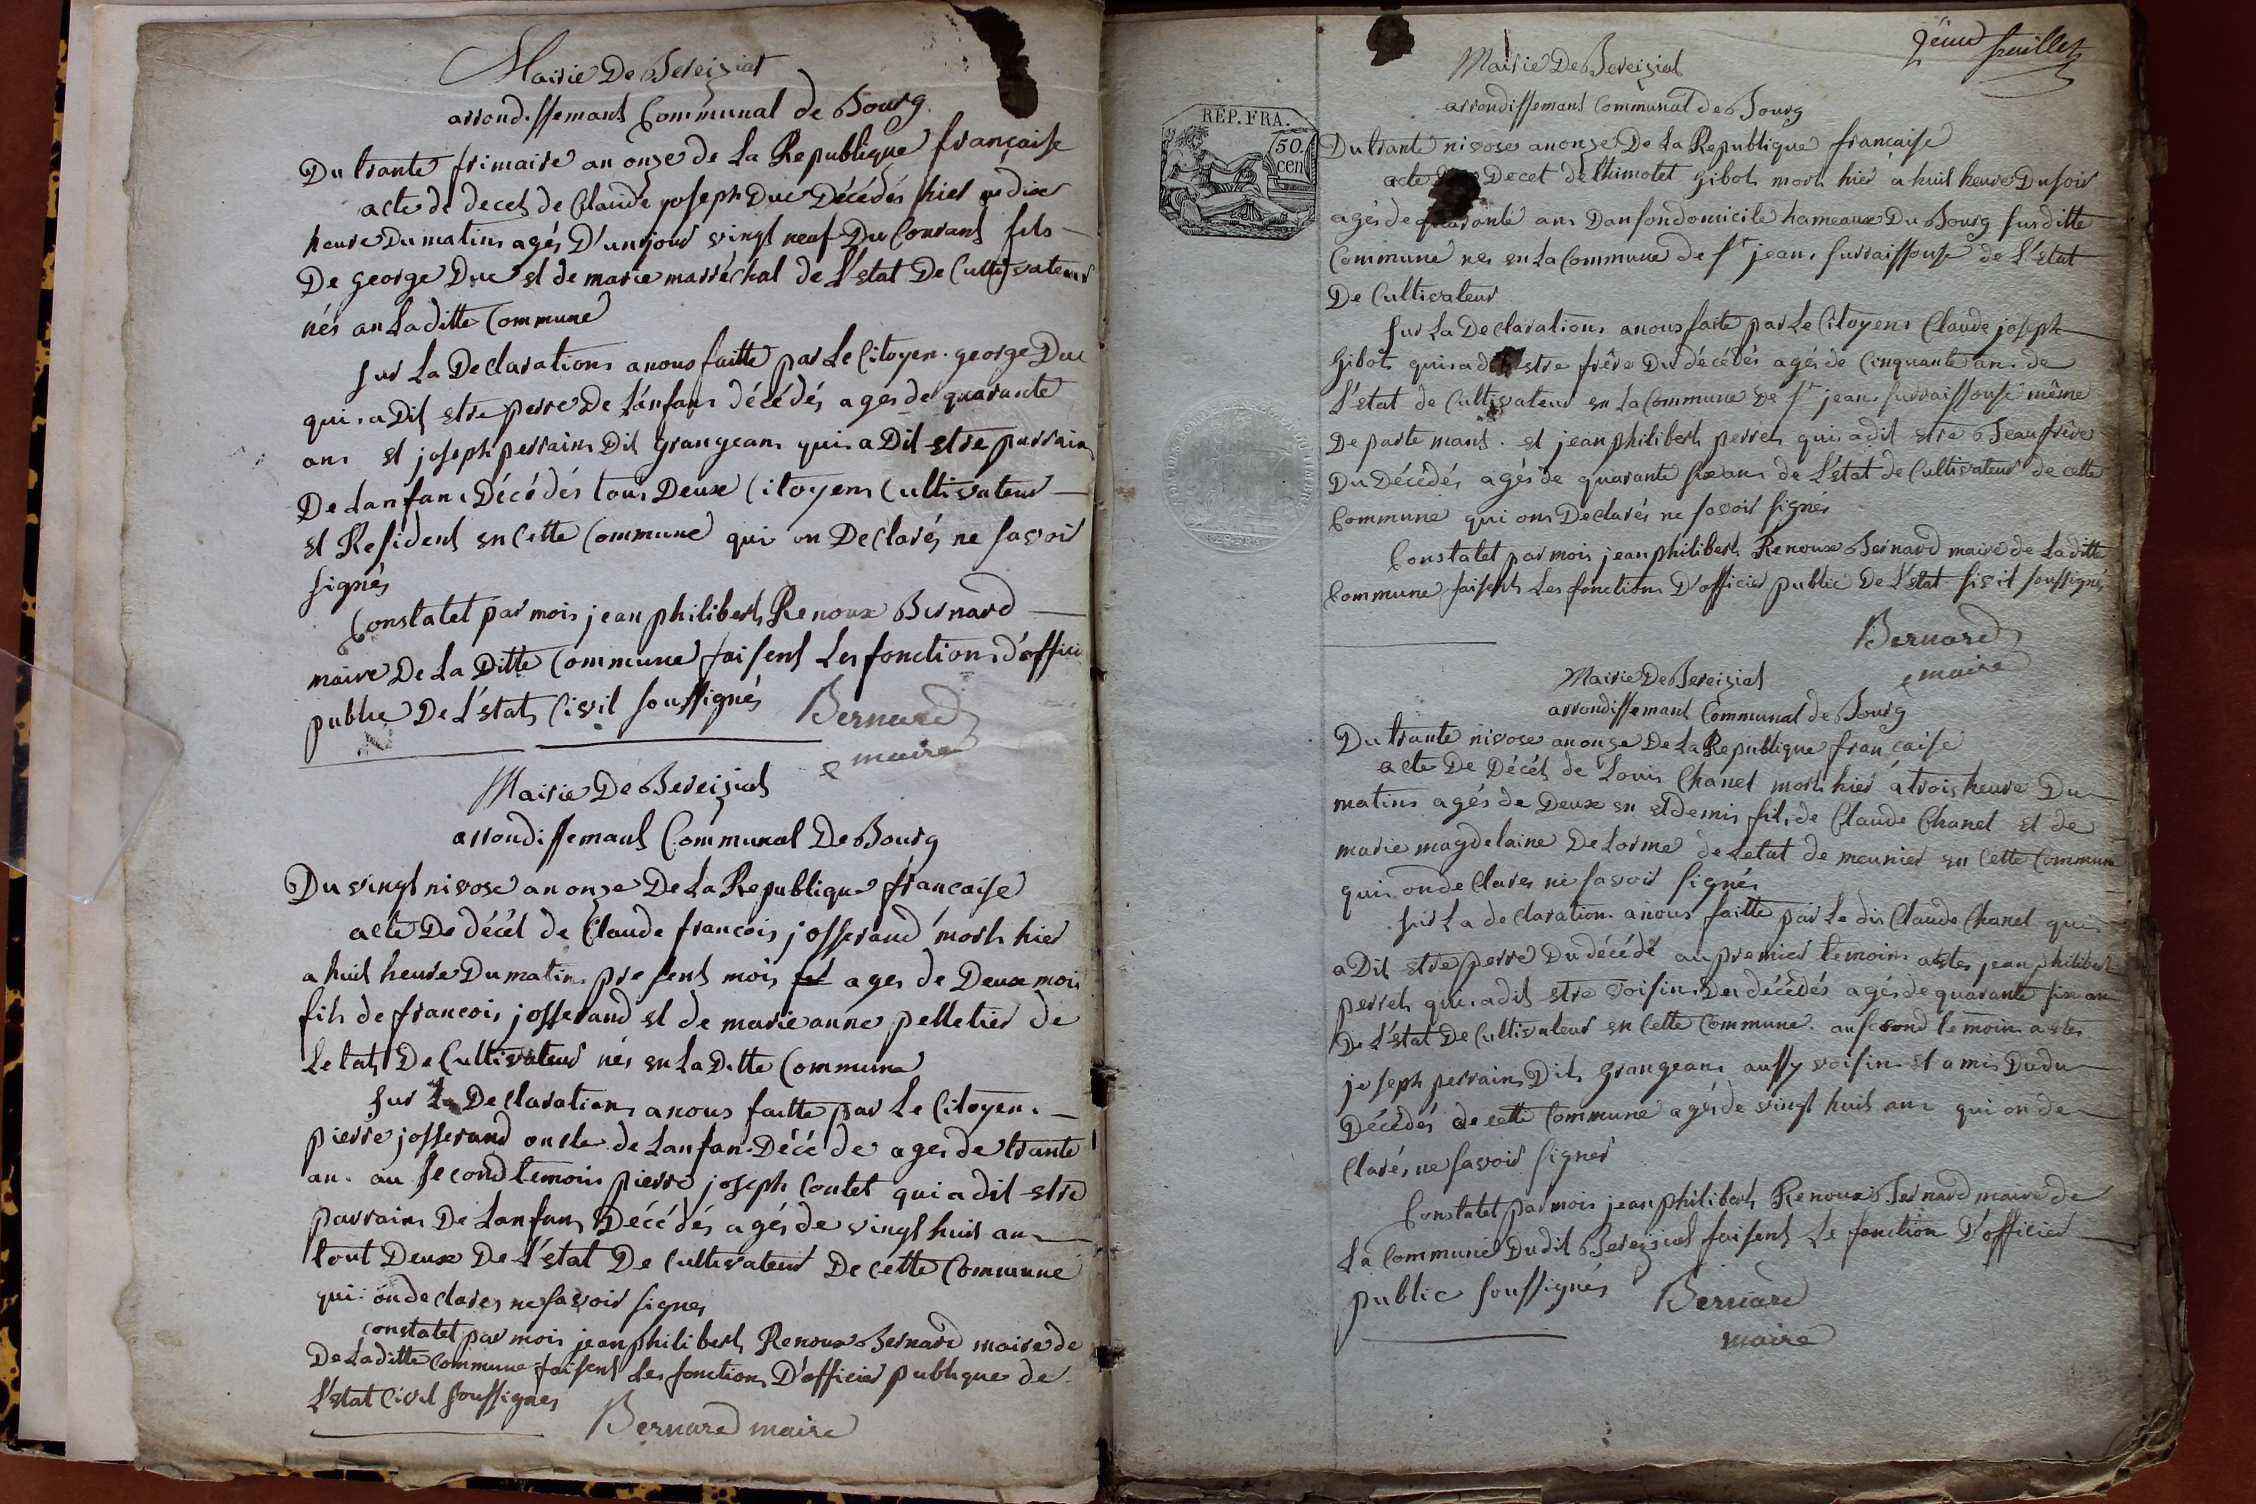 Mairie De Bereiziat
arrondissemant Communal de Bourg
Du trante frimaire an onze de La Republique françaisse
acte de decet de Claude joseph Duc Décédés hier a dix
heure Du matins agés D'un jour vingt neuf Du Courant fils
De george Duc et de marie marréchal de L'état De Cultivateur
nés an Laditte Commune
sur La Declarations a nous faitte par Le Citoyen. george Duc
qui a Dit estre perre De L'anfans décédés ages de quarante
ans et joseph perrains Dit grangeans qui a Dit estre parrain
De Lanfans Décédés tous Deux Citoyens Cultivateur
et Resident en Cette Commune qui on Declarés ne savoir
signés
Constatet par mois jean philibert Renoux Bernard
maire De La Ditte Commune faisent Les fonctions d'offici
public De L'état Civil soussignés
Bernard
maire
Mairie De Bereiziat
arrondissemant Communal De Bourg
Du vingt nivose an onze De La Republique francaise
acte De décét de Claude francois josserand mort hier
a huit heure Du matins present mois ages de Deux mois
fils de francois josserand et de marie anne pelletier de
Letat De Cultivateur nés en La Ditte Commune
sur La Declarations a nous faitte par Le Citoyen.
pierre josserand oncle de Lanfan Décéde ages de trante
an. au second temoins pierre joseph Coutet qui a dit estre
parrains De Lanfans Décédés agés de vingt huit an
tout Deux De L'état De Cultivateur De cette Commune
qui on declares ne savoir signes
constatet par mois jean philibert Renoux Bernard maire de
De Laditte Commune faisent Les fonctions D'officier publique de
L'état Civil soussignes
Bernard maire
2eme feuillet
Mairie De Bereiziat
arrondissemant Communal de Bourg
REP. FRA.
50.
cen
Du trante nivose an onze De La Republique francaise
acte De Decet de thimotet Gibot mort hier a huit heure Du soir
agés de quarante ans Dan son domicile hameaux Du Bourg susditte
Commune nes en La Commune de st jean surraissouse de L'état
De Cultivateur
sur La Declarations a nous faite par Le Citoyens Claude joseph
Gibot qui a dit estre frère Du décédés agés de Cinquante ans de
L'état de Cultivateur en La Commune De st jean surraissouse même
Departemant. et jean philibert perret qui a dit estre Beaufrère
Du Décédés agés de quarante six ans de L'état de Cultivateur de cette
Commune qui ons Declarés ne savoir signés
Constatet par mois jean philibert Renoux Bernard maire de La ditte
Commune faisent Les fonctions D'officier public De L'état sivil soussignés
Bernard
maire
Mairie De Bereiziat
arrondissemant Communal de Bourg
Du trante nivose an onze De La Republique francaise
acte De Décét de Louis Chanel mort hier à trois heure Du
matins agés de Deux en et demis fils de Claude Chanel et de
marie magdelaine De Lorme de Letat de meunier en Cette Commune
qui on declares ne savoir signés
sur La declaration. a nous faitte par Le dis Claude Chanel qui
a Dit estre perre Du décédé au premier temoins jean philibert
perret qui a dit estre voisins Du décédés agés de quarante six an
De L'état De Cultivateur en Cette Commune. au second temoin
joseph perrains Dit Grangeans aussy voisin et amis Du du
Décédés de cette Commune agés de vingt huit ans qui on de
clarés ne savoir signer
Constatet par mois jean philibert Renoux Bernard maire de
La Commune Dudit Bereiziat faisent Le fonction D'officier
public soussignés
Bernard
maire